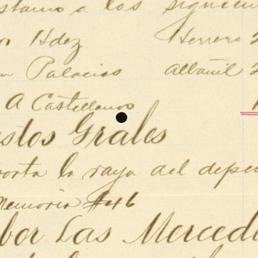 stamo a los siguien
os Hdez Herrero 2
n Palacios Albañil 2
A Castellanos 1
stos Grales
orta la raya del depen
Memoria #46
bor Las Merced